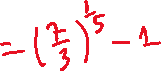 = (7/3)^{1/5} - 1